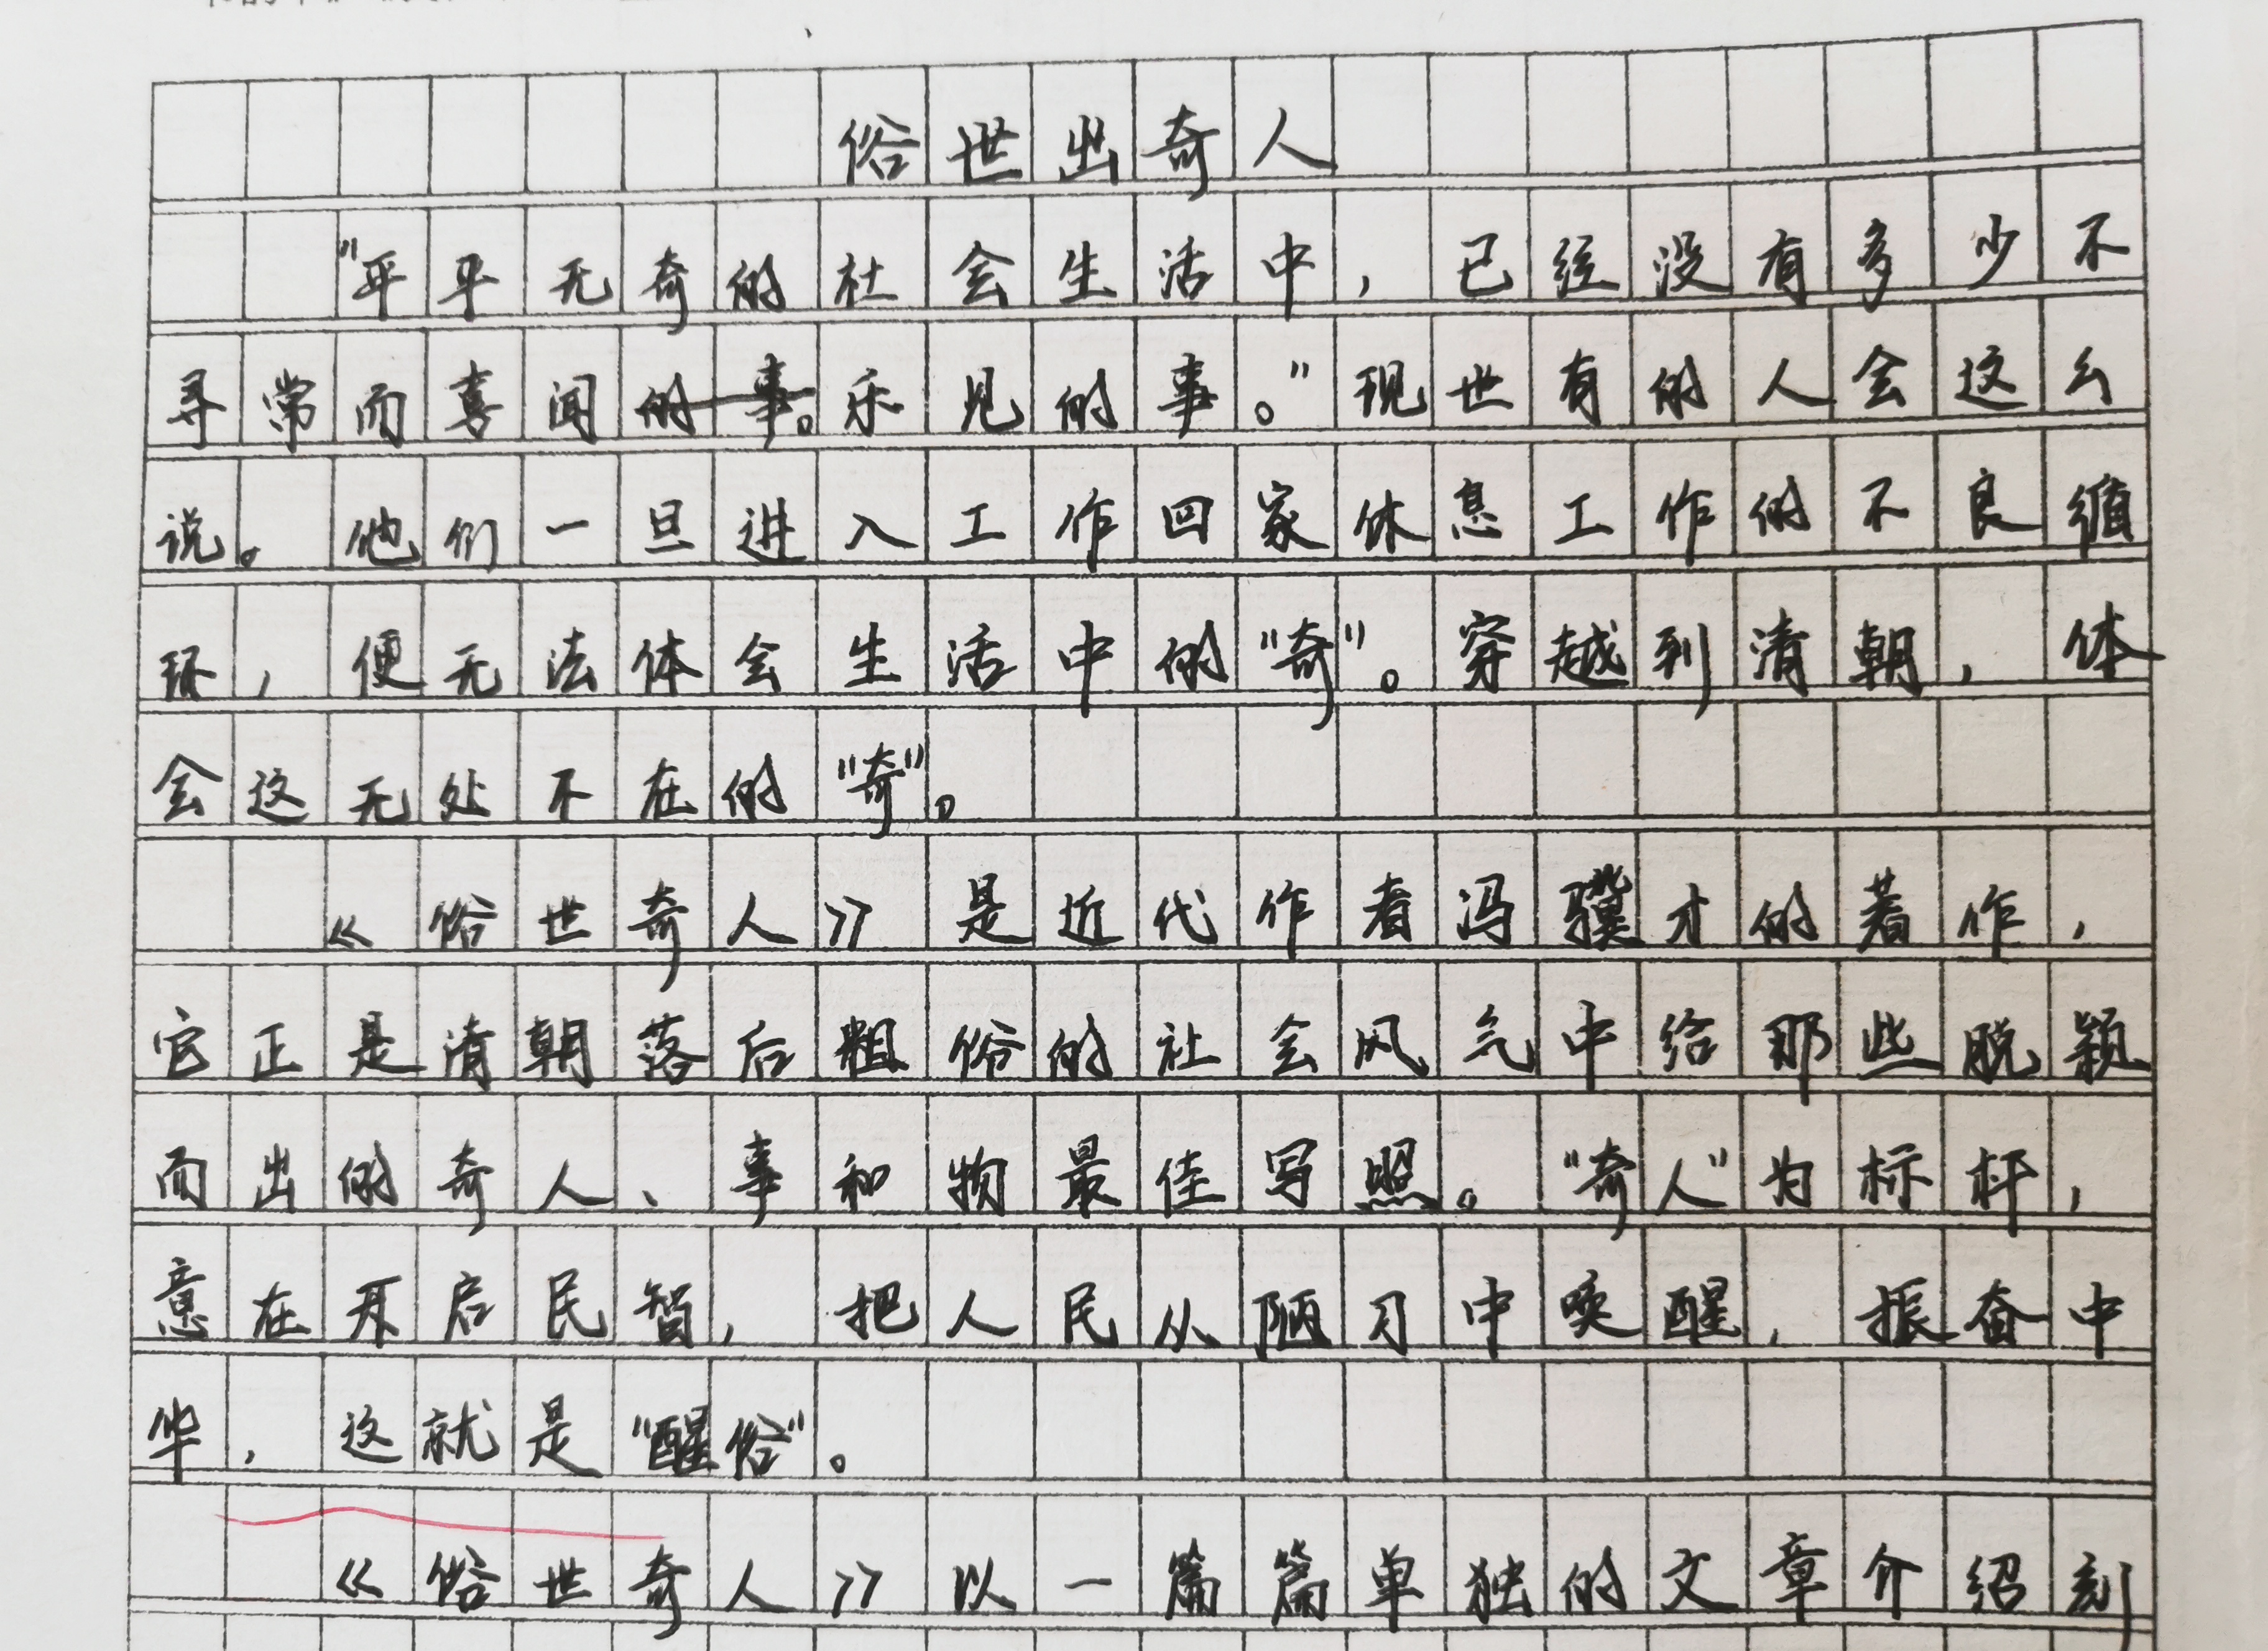 俗世出奇人
"平平无奇的社会生活中，已经没有多少不
寻常而喜闻的事。乐见的事。"现世有的人会这么
说。他们一旦进入工作回家休息工作的不良循
环，便无法体会生活中的"奇"。穿越到清朝，体
会这无处不在的"奇"。
《俗世奇人》是近代作者冯骥才的著作，
它正是清朝落后粗俗的社会风气中给那些脱颖
而出的奇人、事和物最佳写照。"奇人"为标杆，
意在开启民智，把人民从陋习中唤醒，振奋中
华，这就是"醒俗"。
《俗世奇人》以一篇篇单独的文章介绍刻